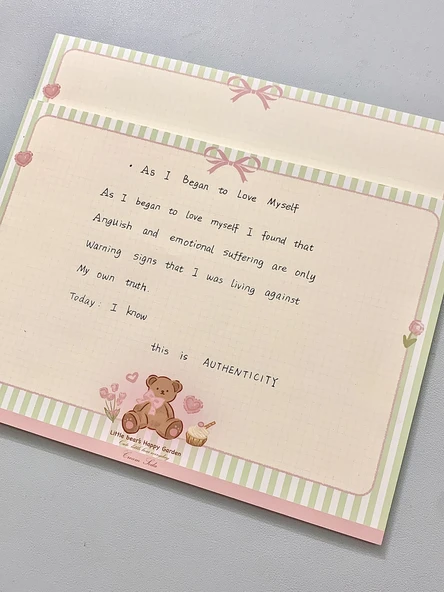 • As I Began to Love Myself
As I began to love myself I found that
Anguish and emotional suffering are only
Warning signs that I was living against
My own truth.
Today: I know
this is AUTHENTICITY
Little bear's Happy Garden